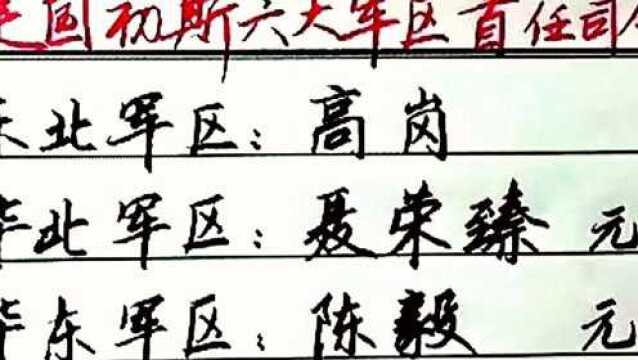 建国初期六大军区首任司令
东北军区：高岗
华北军区：聂荣臻 元
华东军区：陈毅 元